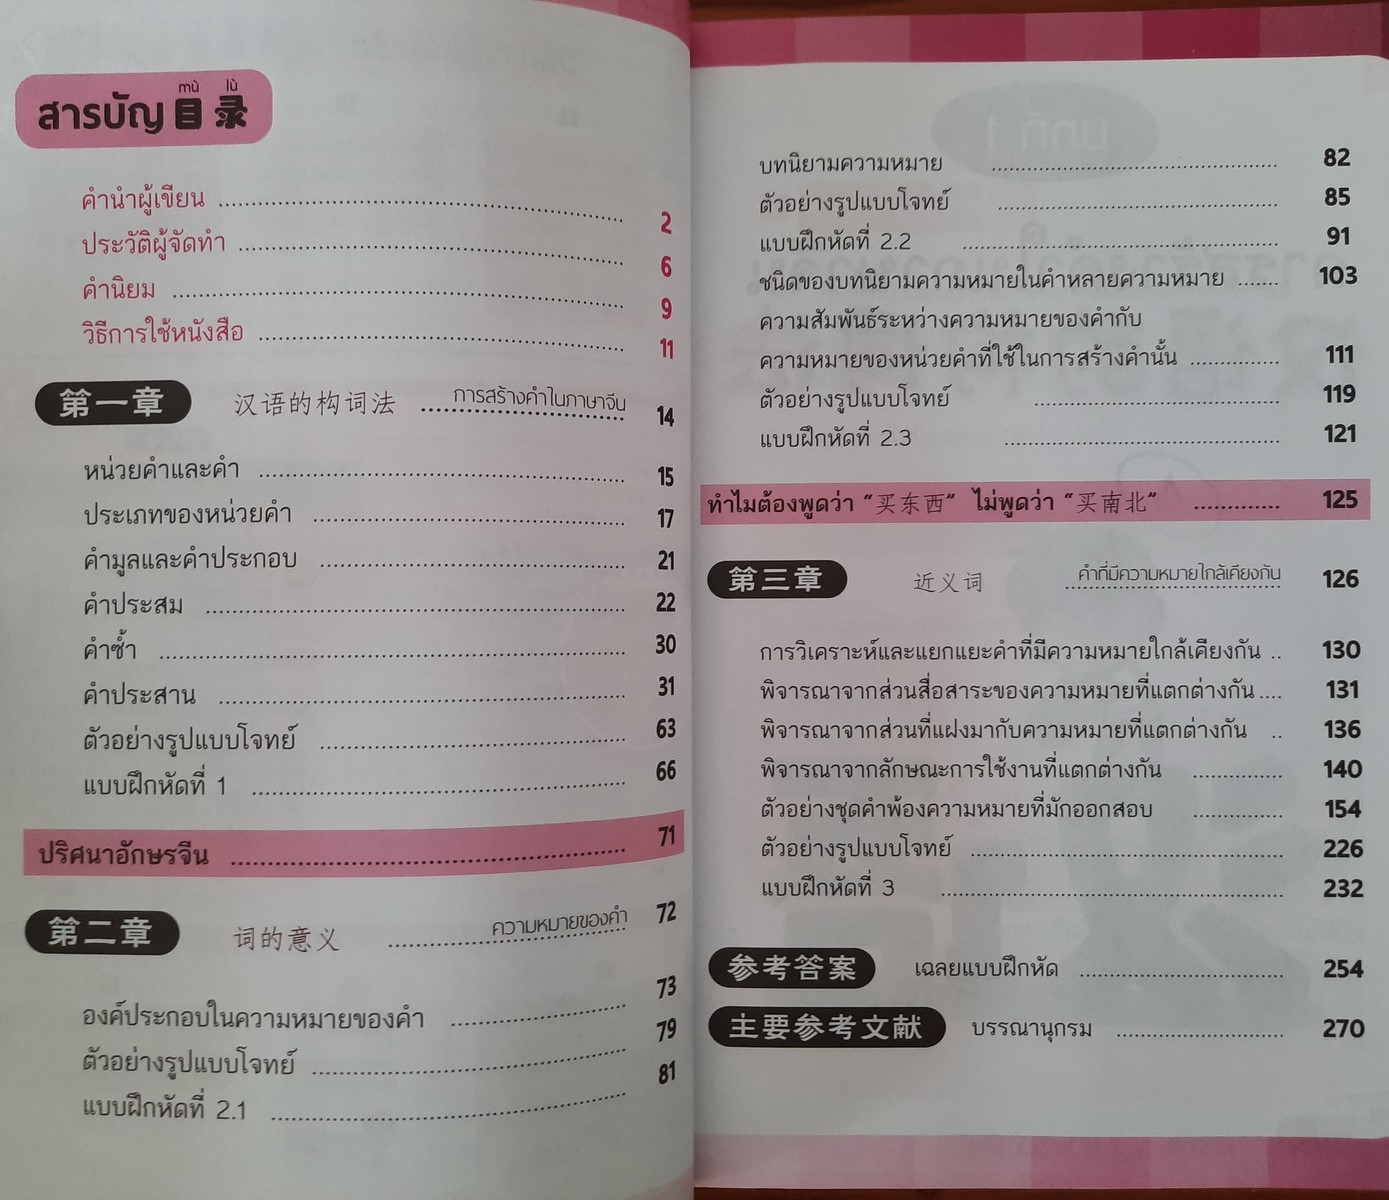 mù lù
สารบัญ 目 录
คำนำผู้เขียน 2
ประวัติผู้จัดทำ 6
คำนิยม 9
วิธีการใช้หนังสือ 11
第一章 汉语的构词法 การสร้างคำในภาษาจีน 14
หน่วยคำและคำ 15
ประเภทของหน่วยคำ 17
คำมูลและคำประกอบ 21
คำประสม 22
คำซ้ำ 30
คำประสาน 31
ตัวอย่างรูปแบบโจทย์ 63
แบบฝึกหัดที่ 1 66
ปริศนาอักษรจีน 71
第二章 词的意义 ความหมายของคำ 72
องค์ประกอบในความหมายของคำ 73
ตัวอย่างรูปแบบโจทย์ 79
แบบฝึกหัดที่ 2.1 81
บทนิยามความหมาย 82
ตัวอย่างรูปแบบโจทย์ 85
แบบฝึกหัดที่ 2.2 91
ชนิดของบทนิยามความหมายในคำหลายความหมาย 103
ความสัมพันธ์ระหว่างความหมายของคำกับ
ความหมายของหน่วยคำที่ใช้ในการสร้างคำนั้น 111
ตัวอย่างรูปแบบโจทย์ 119
แบบฝึกหัดที่ 2.3 121
ทำไมต้องพูดว่า "买东西" ไม่พูดว่า "买南北" 125
第三章 近义词 คำที่มีความหมายใกล้เคียงกัน 126
การวิเคราะห์และแยกแยะคำที่มีความหมายใกล้เคียงกัน 130
พิจารณาจากส่วนสื่อสาระของความหมายที่แตกต่างกัน 131
พิจารณาจากส่วนที่แฝงมากับความหมายที่แตกต่างกัน 136
พิจารณาจากลักษณะการใช้งานที่แตกต่างกัน 140
ตัวอย่างชุดคำพ้องความหมายที่มักออกสอบ 154
ตัวอย่างรูปแบบโจทย์ 226
แบบฝึกหัดที่ 3 232
参考答案 เฉลยแบบฝึกหัด 254
主要参考文献 บรรณานุกรม 270